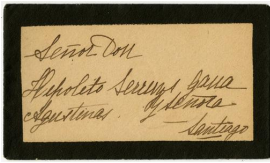 Señor Don
Hipolito Serruys Gana
y Señora
Agustinas.
Santiago